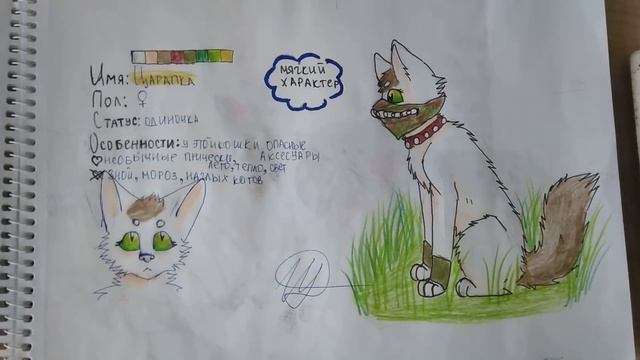 Имя: Царапка
Пол: ♀
Статус: одиночка
Особенности: у этой кошки опасные аксесуары
♡ необычные
лето, тепло, свет
зной, мороз, наглых котов
мягкий
характер